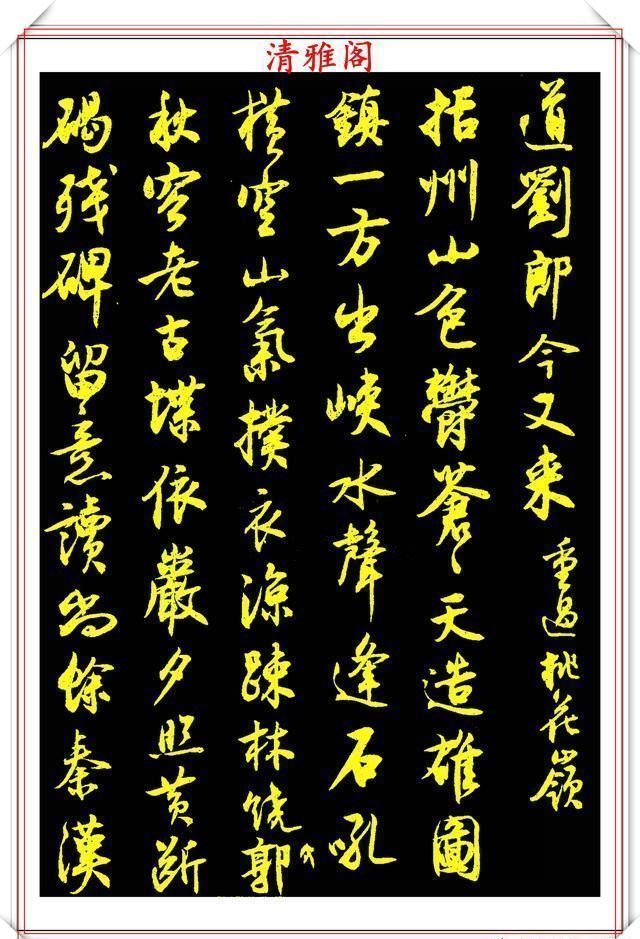 清雅阁
道劉郎今又来 重過桃花嶺
括州山色鬱蒼〻天造雄圖
鎮一方出峡水聲逢石吼
横空山氣撲衣涼疎林饒郭
秋容老古堞依巖夕照黄斷
碣残碑留意讀尚餘秦漢